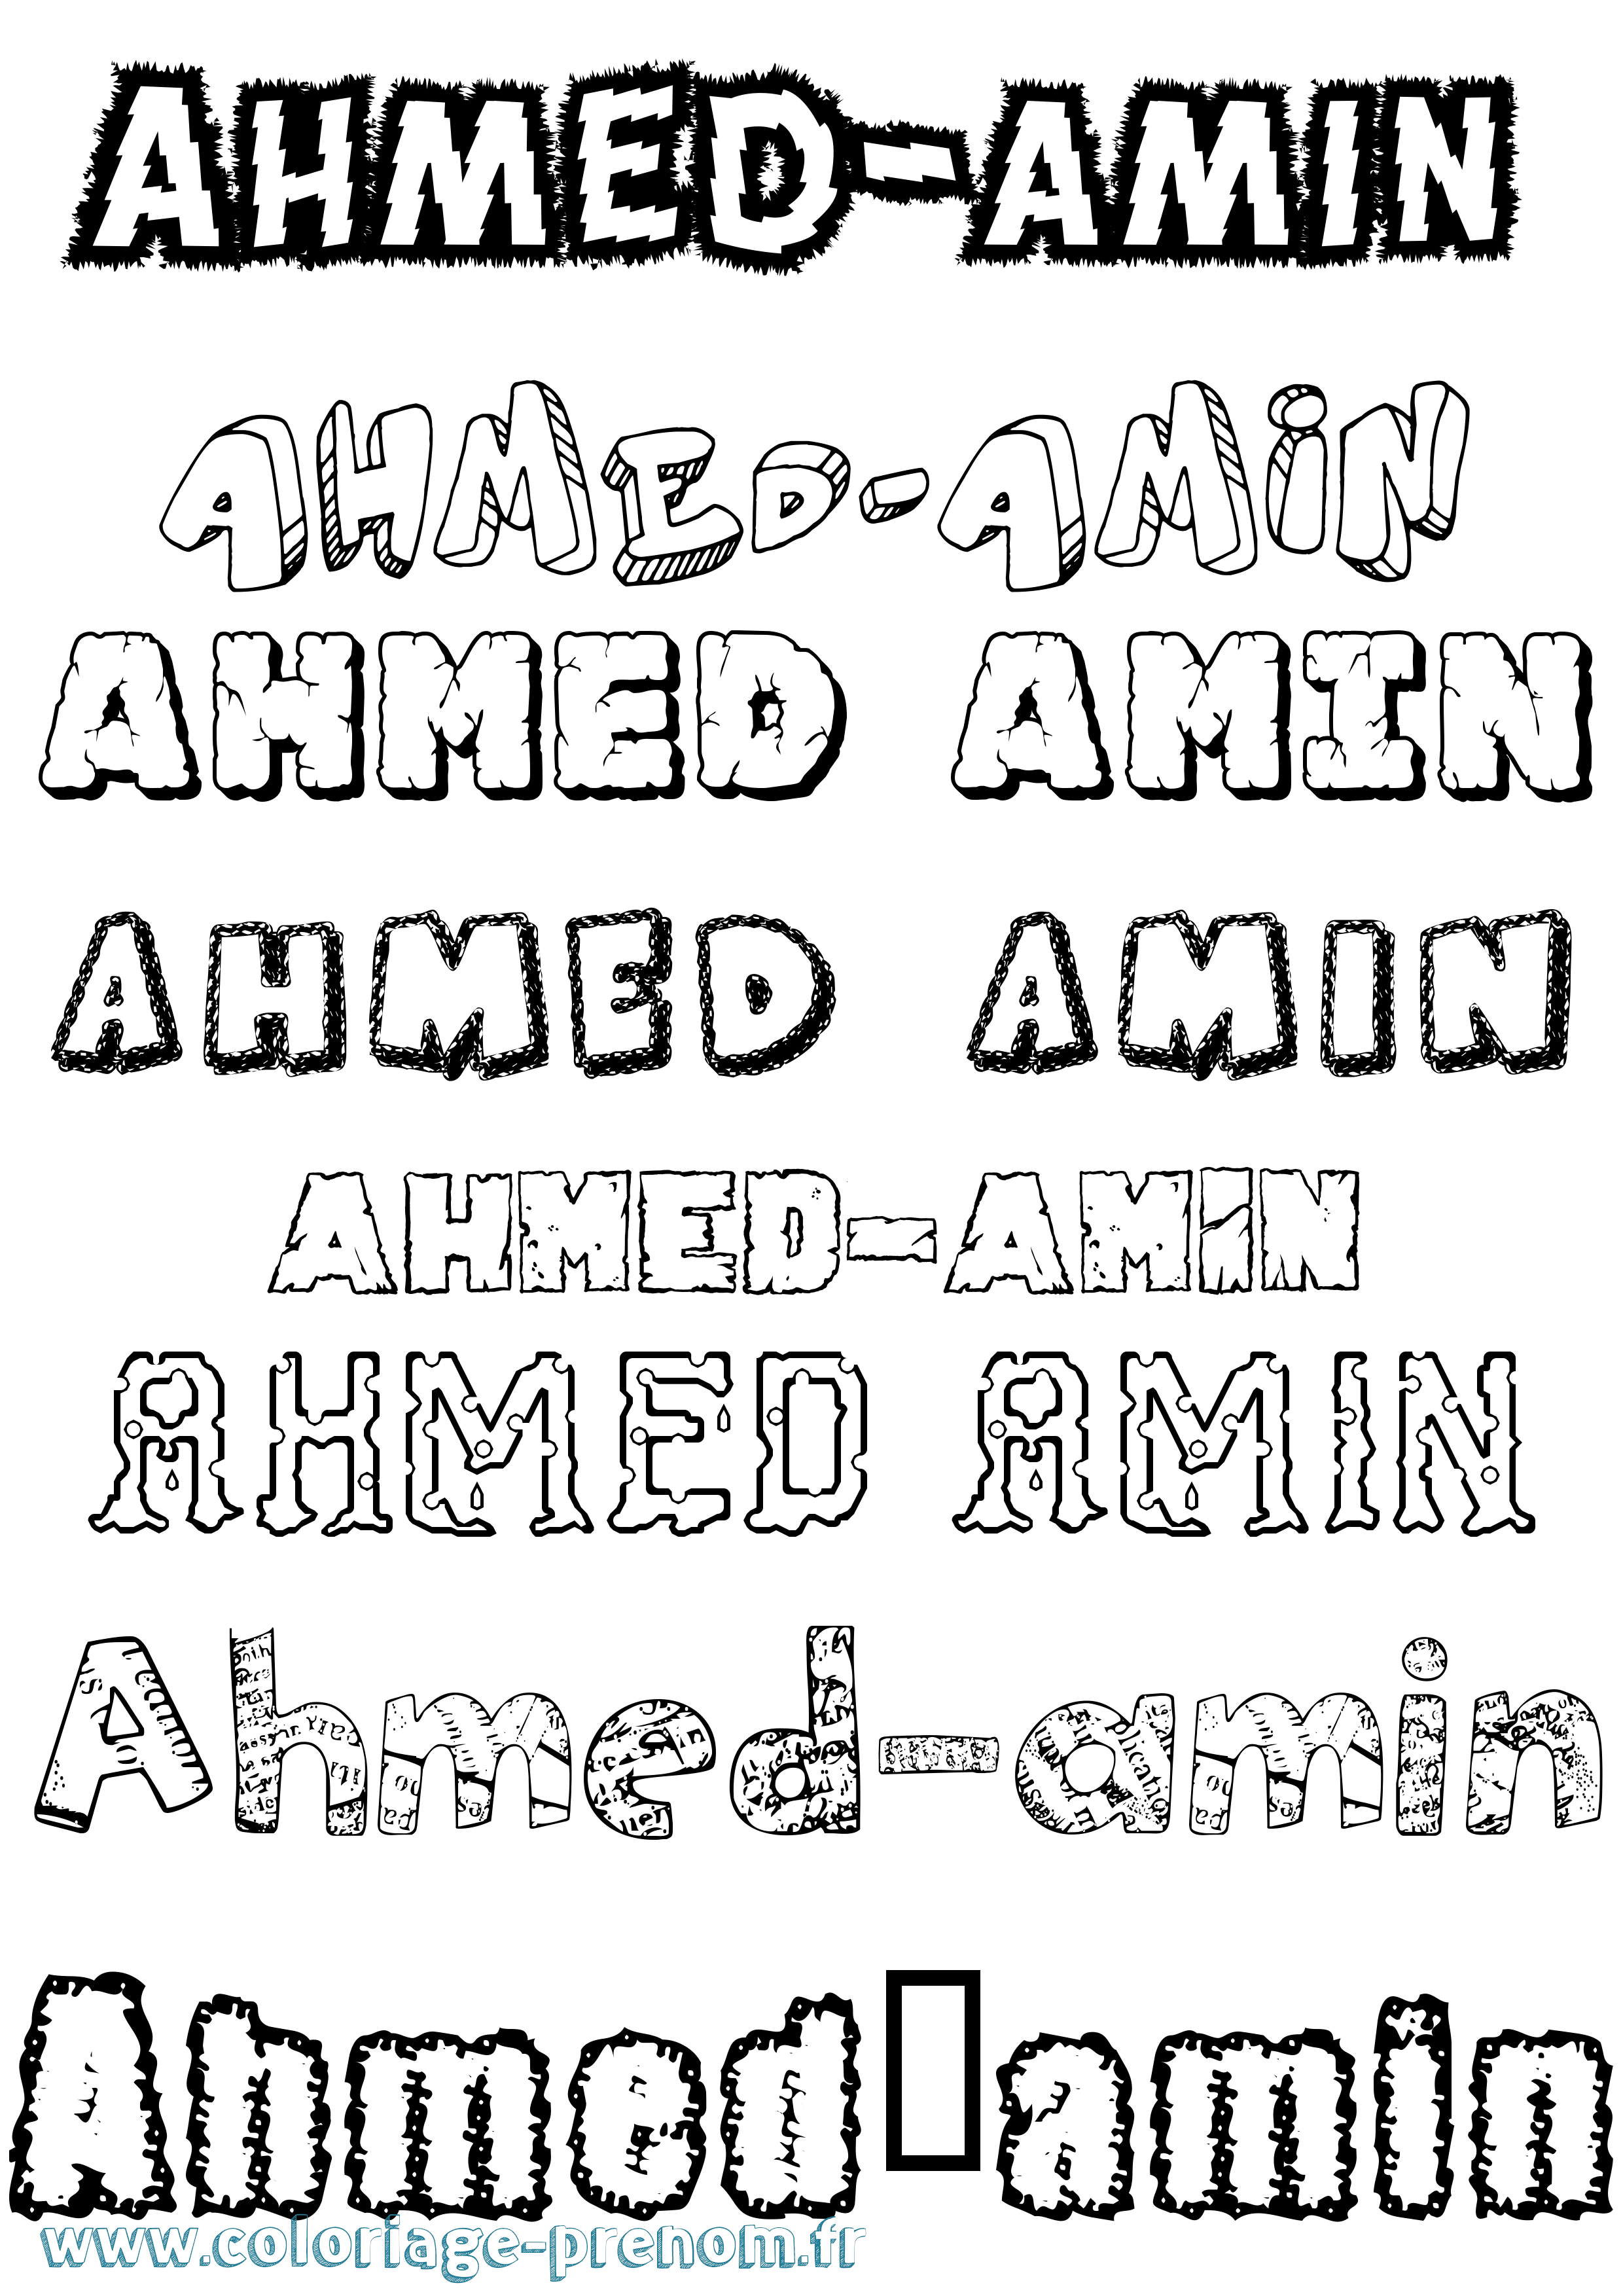 AHMED-AMIN
AHMED-AMiN
AHMED AMIN
AHMED AMIN
AHMED-AMiN
AHMED AMIN
Ahmed-amin
Ahmed▯amin
www.coloriage-prenom.fr